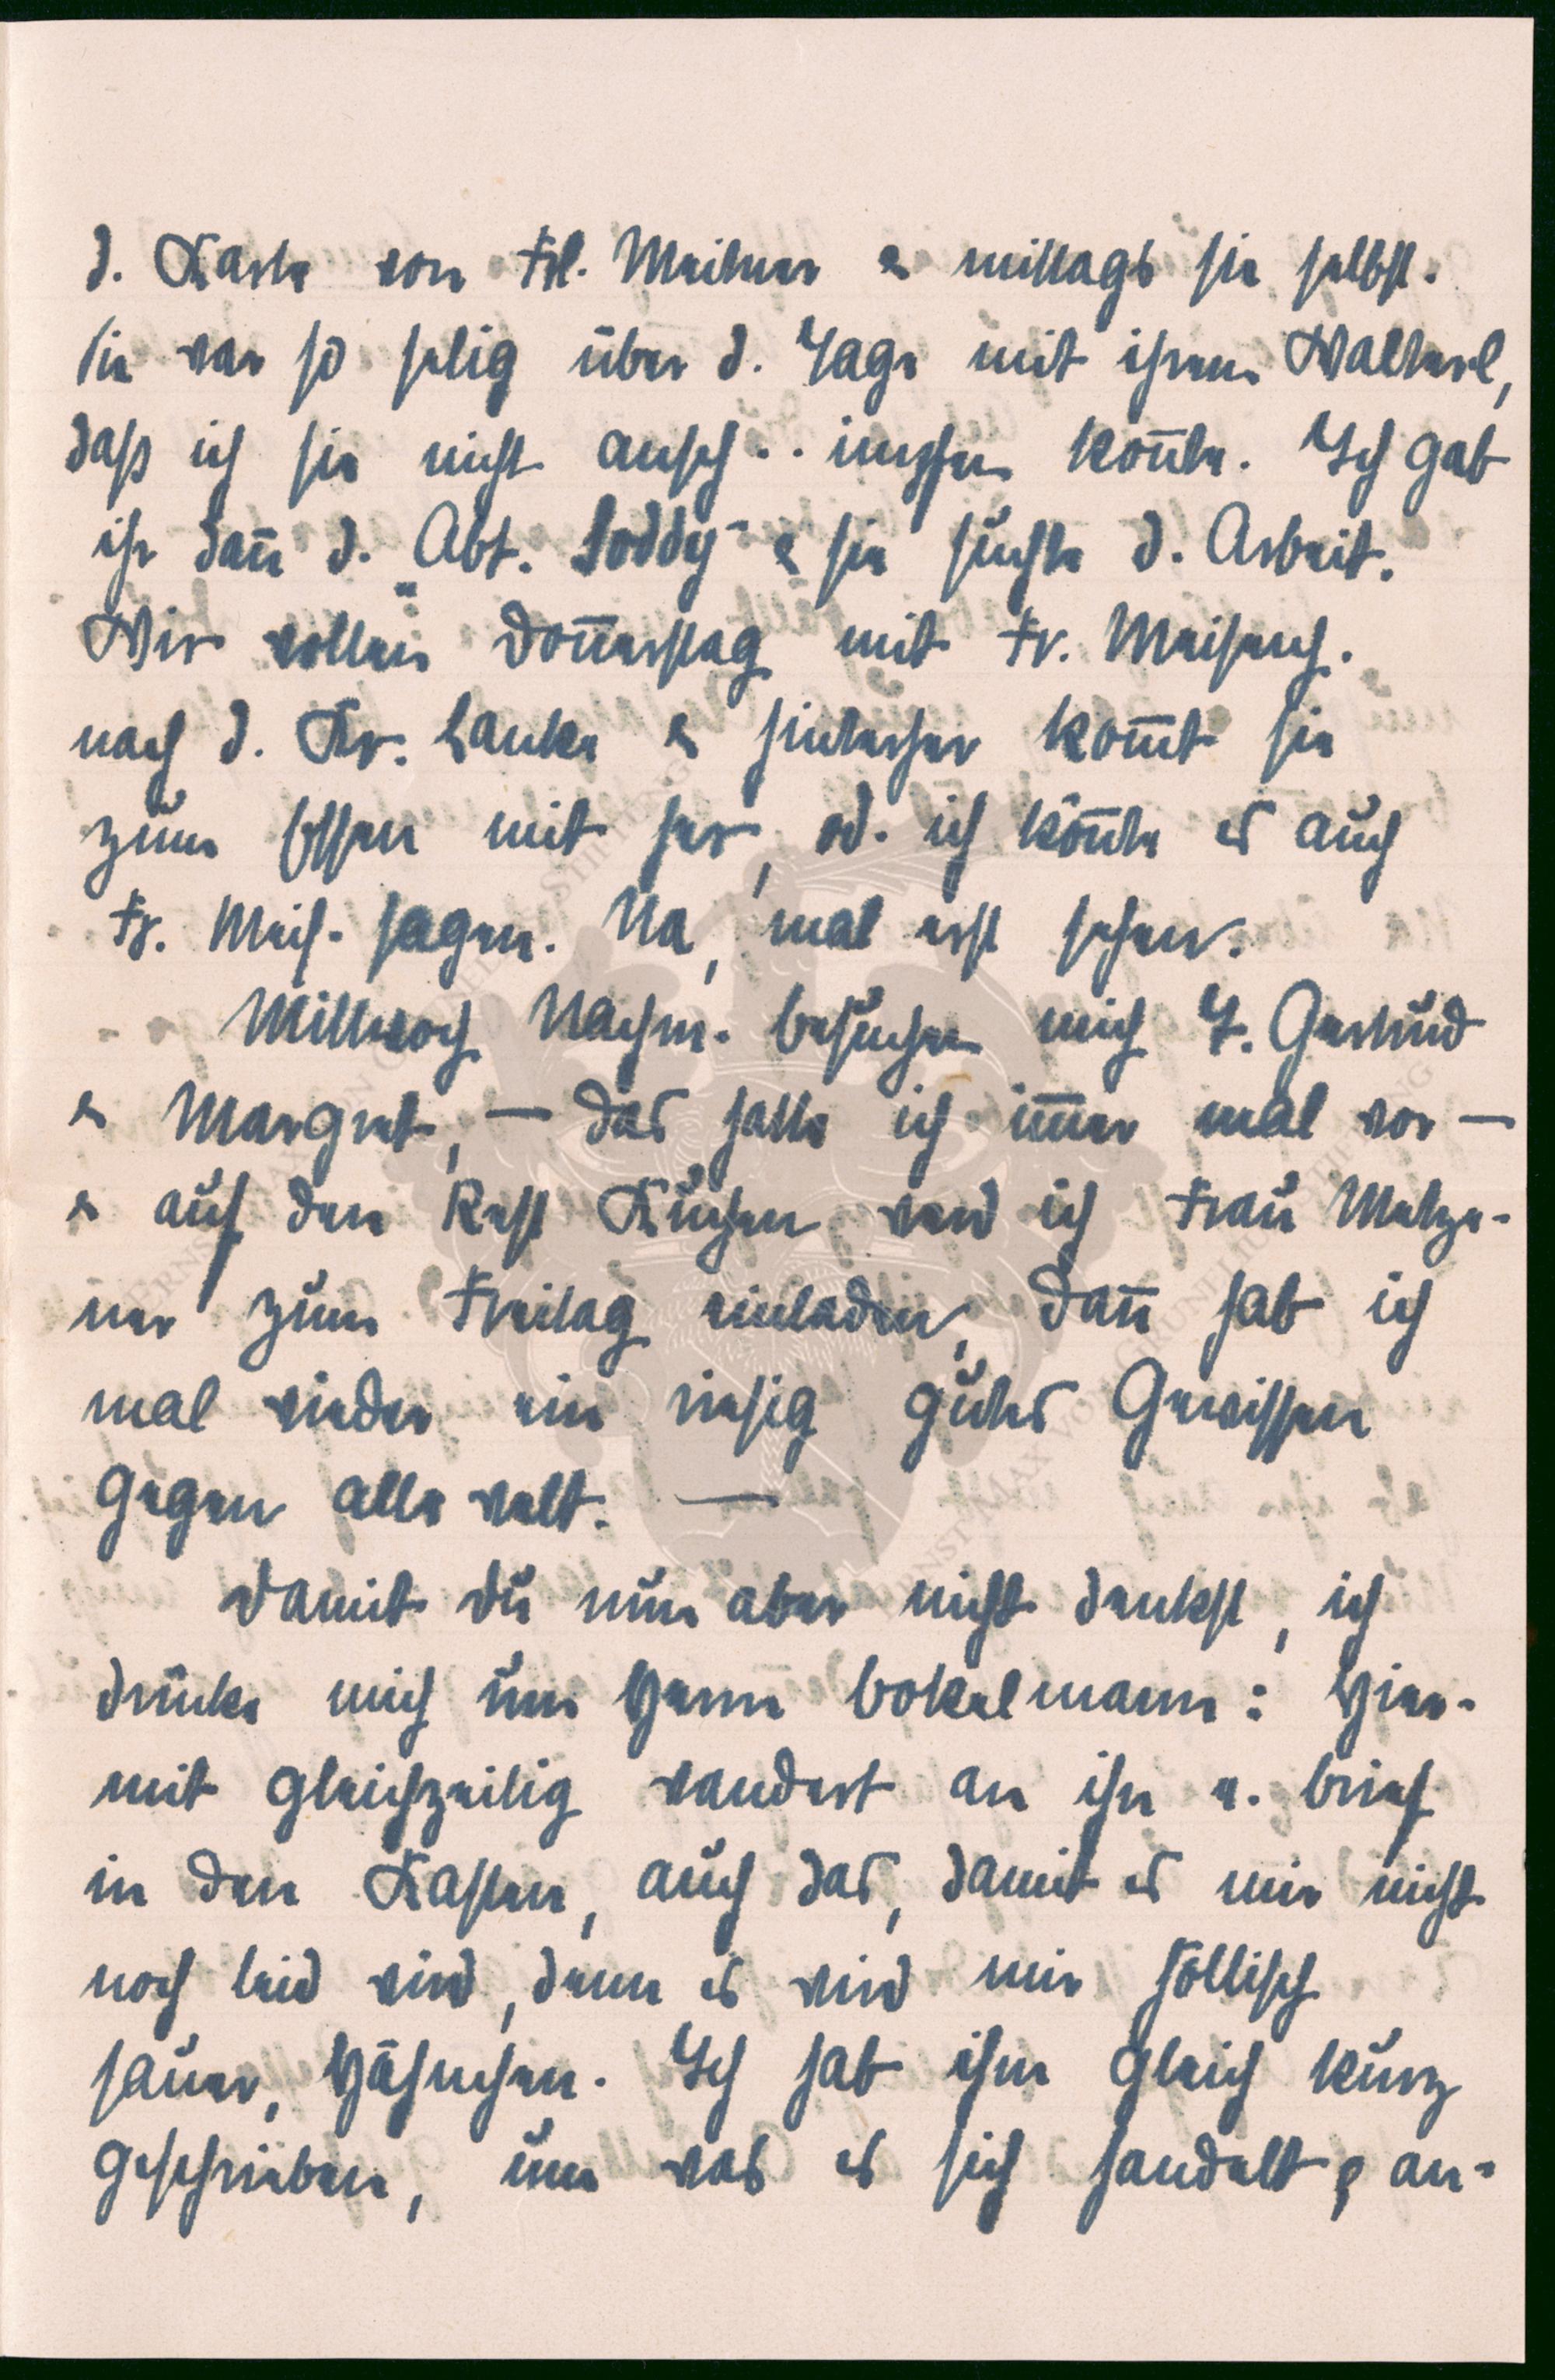 d. Karte von Frl. Meitner & mittags sie selbst.
Sie war so selig über d. Tage mit ihrem Walterl,
daß ich sie nicht ansch.. konnte. Ich gab
ihr dan̄ d. „Abt. Soddy“ & sie suchte d. Arbeit.
Wir wollen Don̄erstag mit Fr. Meisench.
nach d. Kr. Lanke & hinterher kom̄t sie
zum Essen mit her, od. ich kön̄te es auch
Fr. Meis. sagen. Na, mal erst sehen.
Mittwoch Nachm. besuchen mich T. Gertrud
& Margret, – das hatte ich im̄er mal vor –
& auf den Rest Kuchen werd ich Frau Metze-
ner zum Freitag einladen, dan̄ hab ich
mal wieder ein riesig gutes Gewissen
gegen alle Welt. —
Damit Du nun aber nicht denkst, ich
drücke mich um Herrn Bokelmann: Hier-
mit gleichzeitig wandert an ihn e. Brief
in den Kasten, auch das, damit es mir nicht
noch leid wird, denn es wird mir höllisch
sauer, Hähnchen. Ich hab ihm gleich kurz
geschrieben, um was es sich handelt & an-